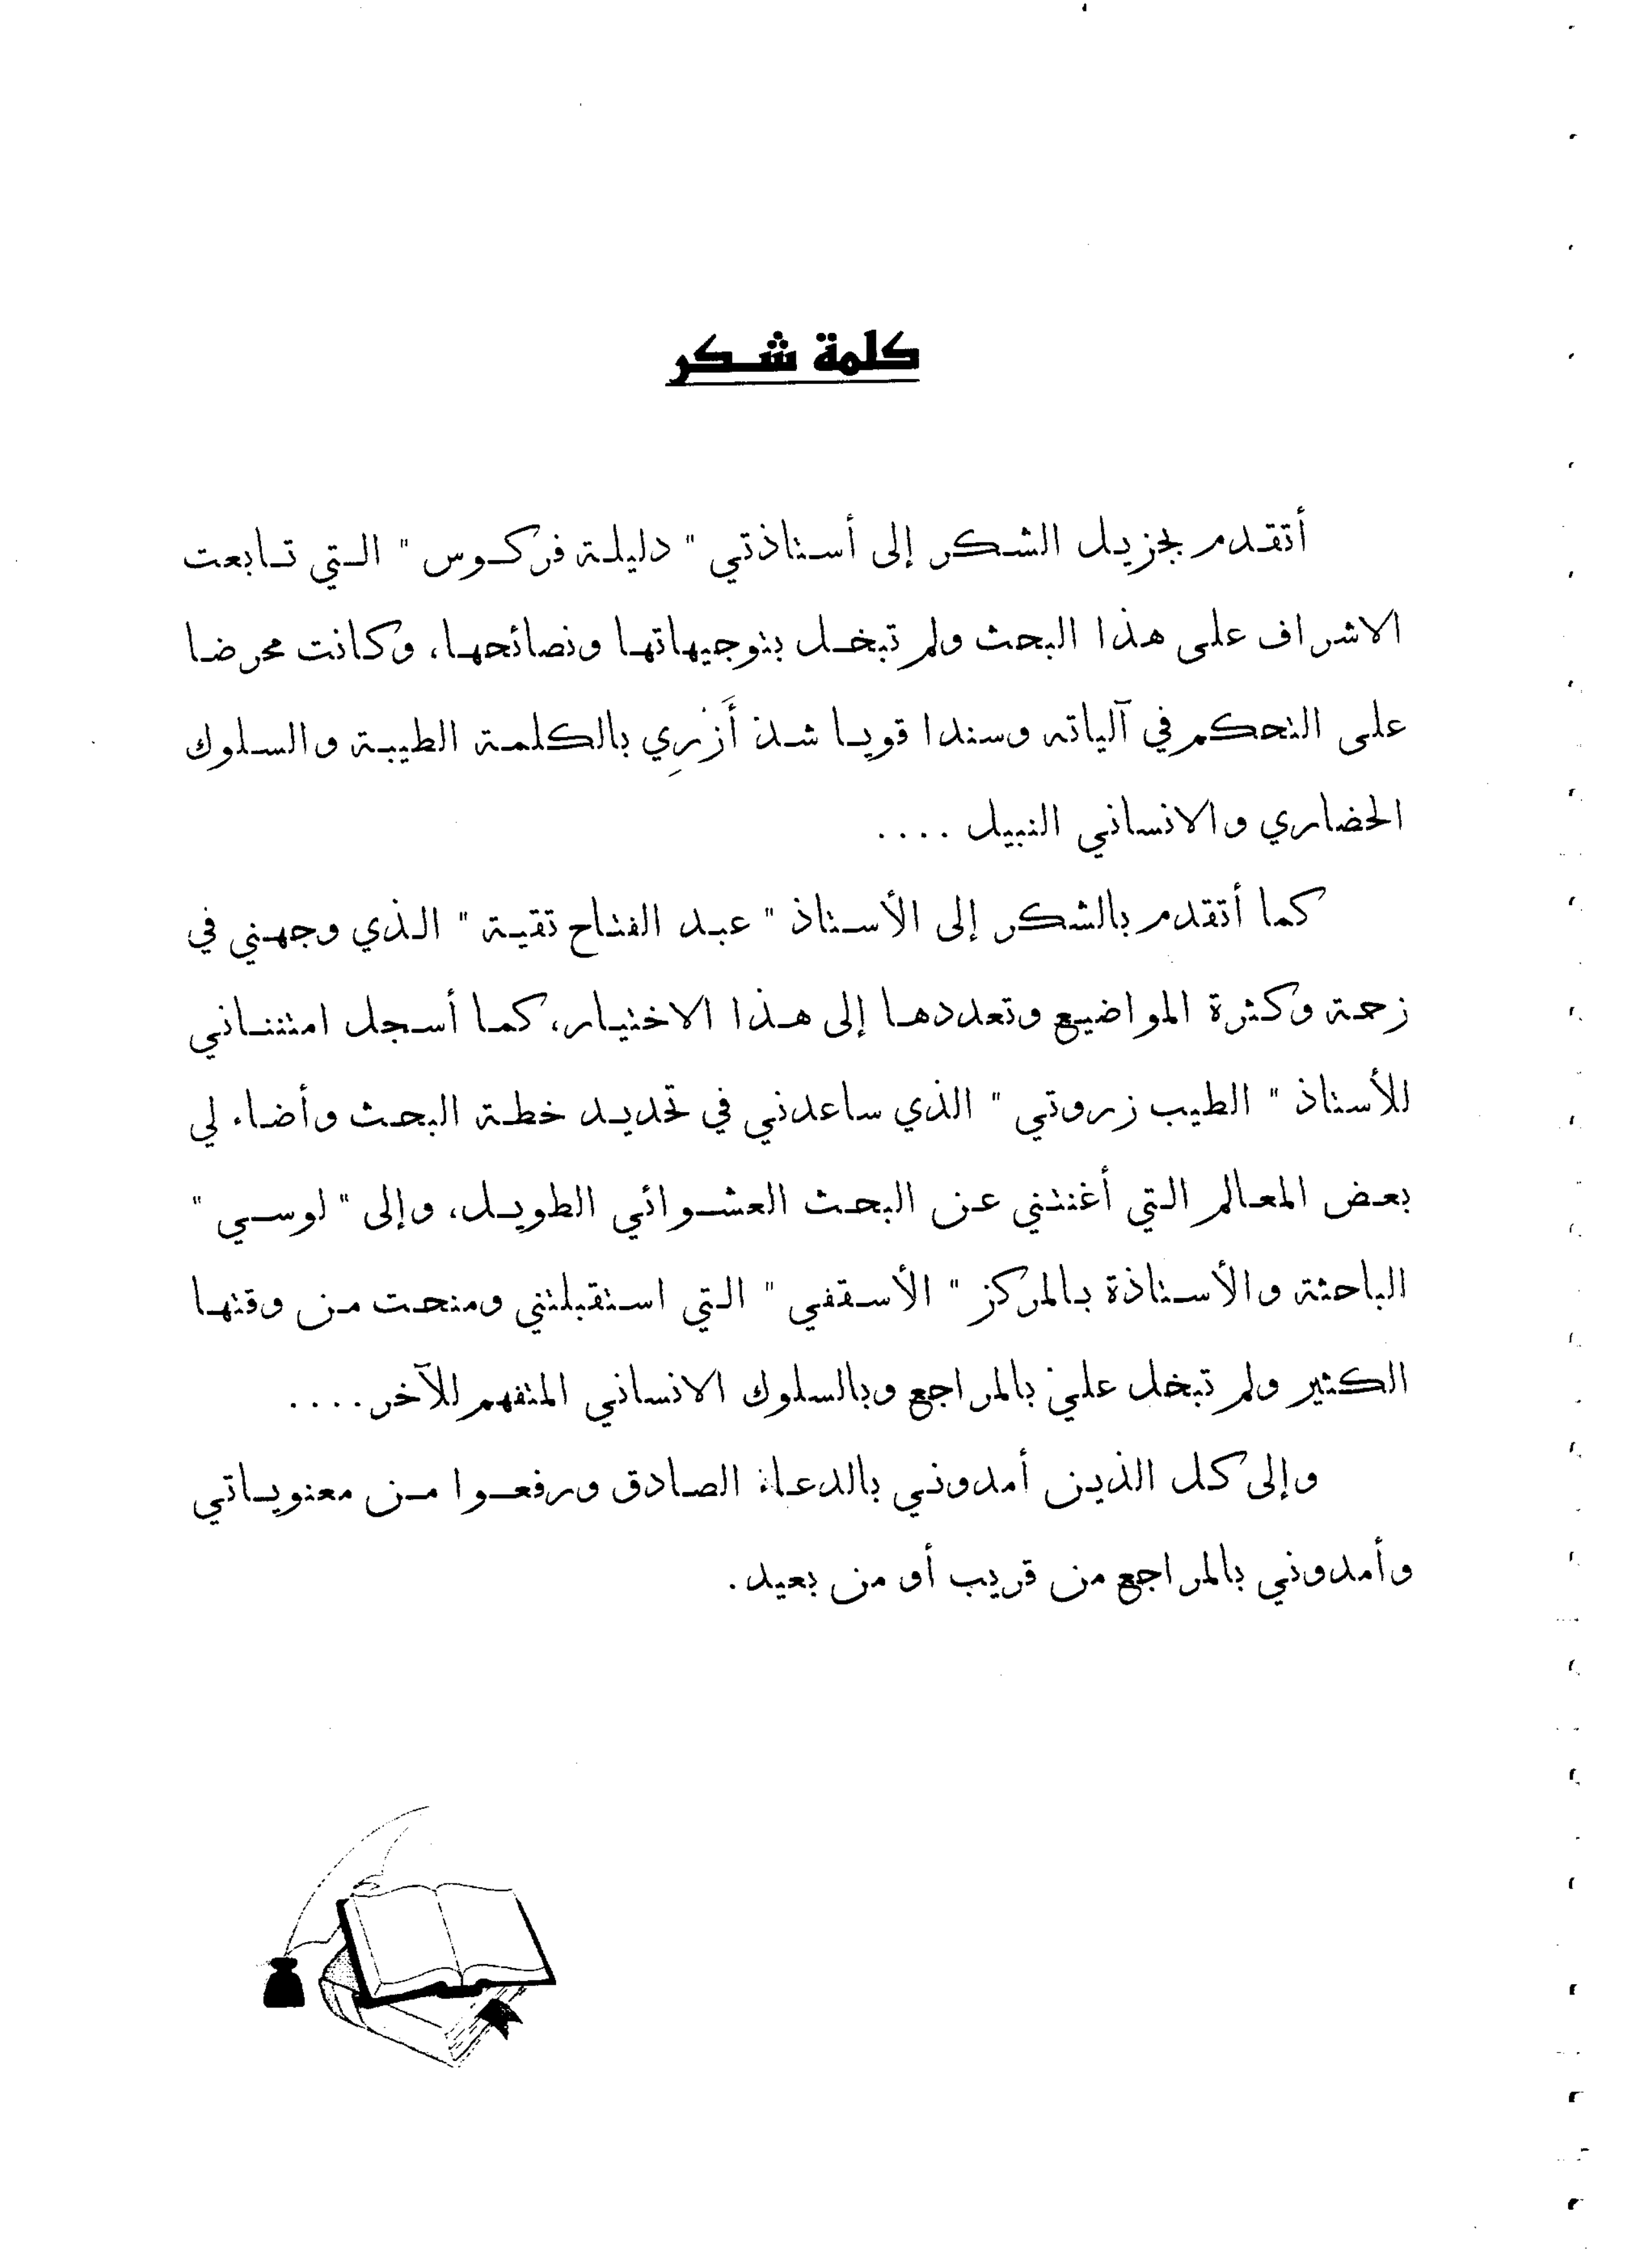 كلمة شكر
أتقدم بجزيل الشكر إلى أستاذتي " دليلة فركوس " التي تابعت
الاشراف على هذا البحث ولم تبخل بتوجيهاتها ونصائحها، وكانت محرضا
على التحكم في آلياته وسندا قويا شدّ أَزْرِي بالكلمة الطيبة والسلوك
الحضاري والانساني النبيل ....
كما أتقدم بالشكر إلى الأستاذ " عبد الفتاح تقية " الذي وجهني في
زحمة وكثرة المواضيع وتعددها إلى هذا الاختيار، كما أسجل امتناني
للأستاذ " الطيب زروتي " الذي ساعدني في تحديد خطة البحث وأضاء لي
بعض المعالم التي أغنتني عن البحث العشوائي الطويل، وإلى " لوسي "
الباحثة والأستاذة بالمركز " الأسقفي " التي استقبلتني ومنحت من وقتها
الكثير ولم تبخل عليّ بالمراجع وبالسلوك الانساني المتفهم للآخر....
وإلى كل الذين أمدوني بالدعاء الصادق ورفعوا من معنوياتي
وأمدوني بالمراجع من قريب أو من بعيد.